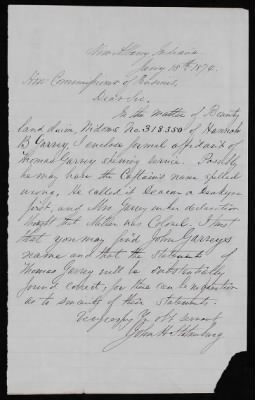 New Albany, Indiana
Jany 18th 1870.
Hon Commissioner of Pensions,
Dear Sir,
In the matter of Bounty
land claim, Widows No. 318.350 of Hannah
B Garvey, I enclose formal affidavit of
Thomas Garvey showing service. Possibly
he may have the Captain's name spelled
wrong. He called it Deacon or
first, and Mrs Garvey in her declaration
thought that Mather was Colonel. I trust
that you may find John Garvey's
name and that the Statement of
Thomas Garvey will be substantially
found correct, for there can be no question
as to sincerity of their statements.
Very respy Yr obt servant
John H.